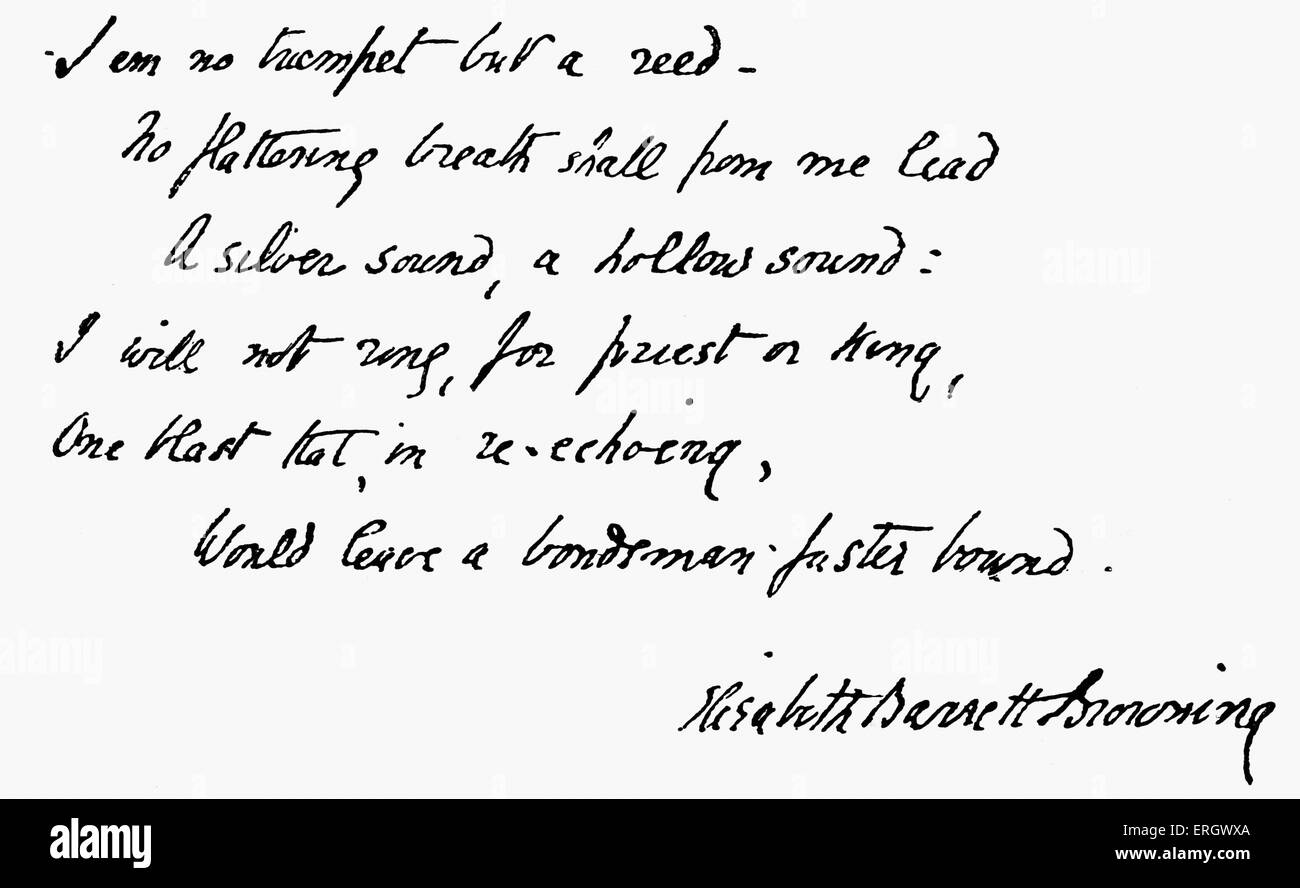 I am no trumpet but a reed -
No flattering breath shall from me lead
A silver sound, a hollow sound :
I will not ring, for priest or king,
One blast that, in re-echoing,
Would leave a bondsman faster bound .
Elizabeth Barrett Browning
alamy
Image ID: ERGWXA
www.alamy.com